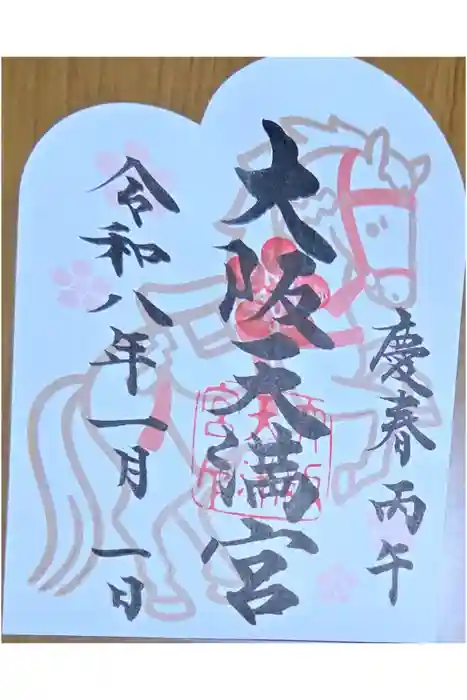 慶春丙午
大阪天満宮
令和八年一月一日